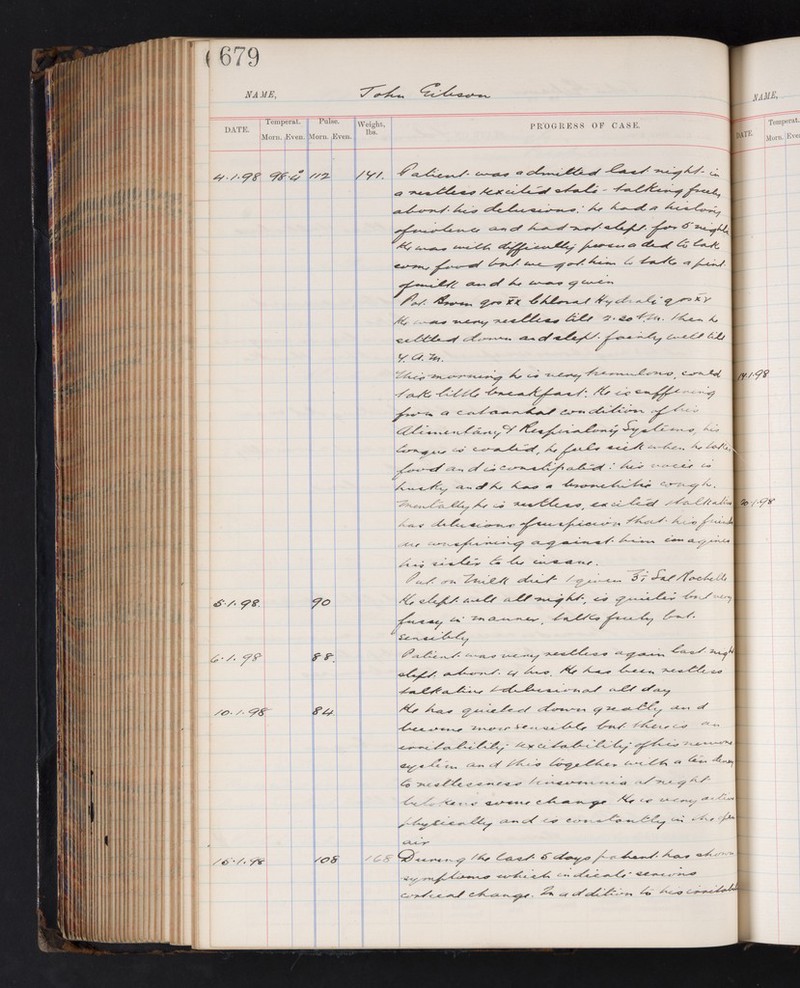 679
NAME, John Gibson
NAME,
DATE. Temperat. Pulse. Weight, lbs. PROGRESS OF CASE.
Morn. Even. Morn. Even.
DATE. Temperat.
Morn. Even
4.1.98 98.4° 112 141. Patient was admitted last night in
a restless & excited state - talking freely
about his delusions; he had a history
of violence and had not slept for 5 nights
He was with difficulty persuaded to take
some food but we got him to take a pint
of milk and he was given
Pot. Brom grs xx Chloral Hydrate grs xv
He was very restless till 2.20 A.M. then he
settled down and slept fairly well till
7. A.M.
This morning he is very tremulous, could
take little breakfast. He is suffering
from a catarrhal condition of his
Alimentary & Respiratory Systems, his
tongue is coated, he feels sick when he takes
food and is constipated; his voice is
husky and he has a bronchitic cough.
Mentally he is restless, excited & talkative
has delusions of suspicion that his friends
are conspiring against him & imagines
his sister to be insane.
Put on Milk diet & given Sal Rochelle
5.1.98. 90 He slept well all night, is quieter but very
fussy in manner, talks freely but
sensibly
6.1.98 88. Patient was very restless again last night
slept about 4 hrs. He has been restless
talkative & delusional all day
10.1.98 84 He has quieted down greatly and
become more sensible but there is an
irritability & excitability of his nervous
system and this together with a tendency
to restlessness & insomnia at night
betokens some change. He is very active
physically and is constantly in the open
air
15.1.98 108 168 During the last 5 days patient has shown
symptoms which indicate serious
cortical change. In addition to his irritability
14.1.98
20.1.98